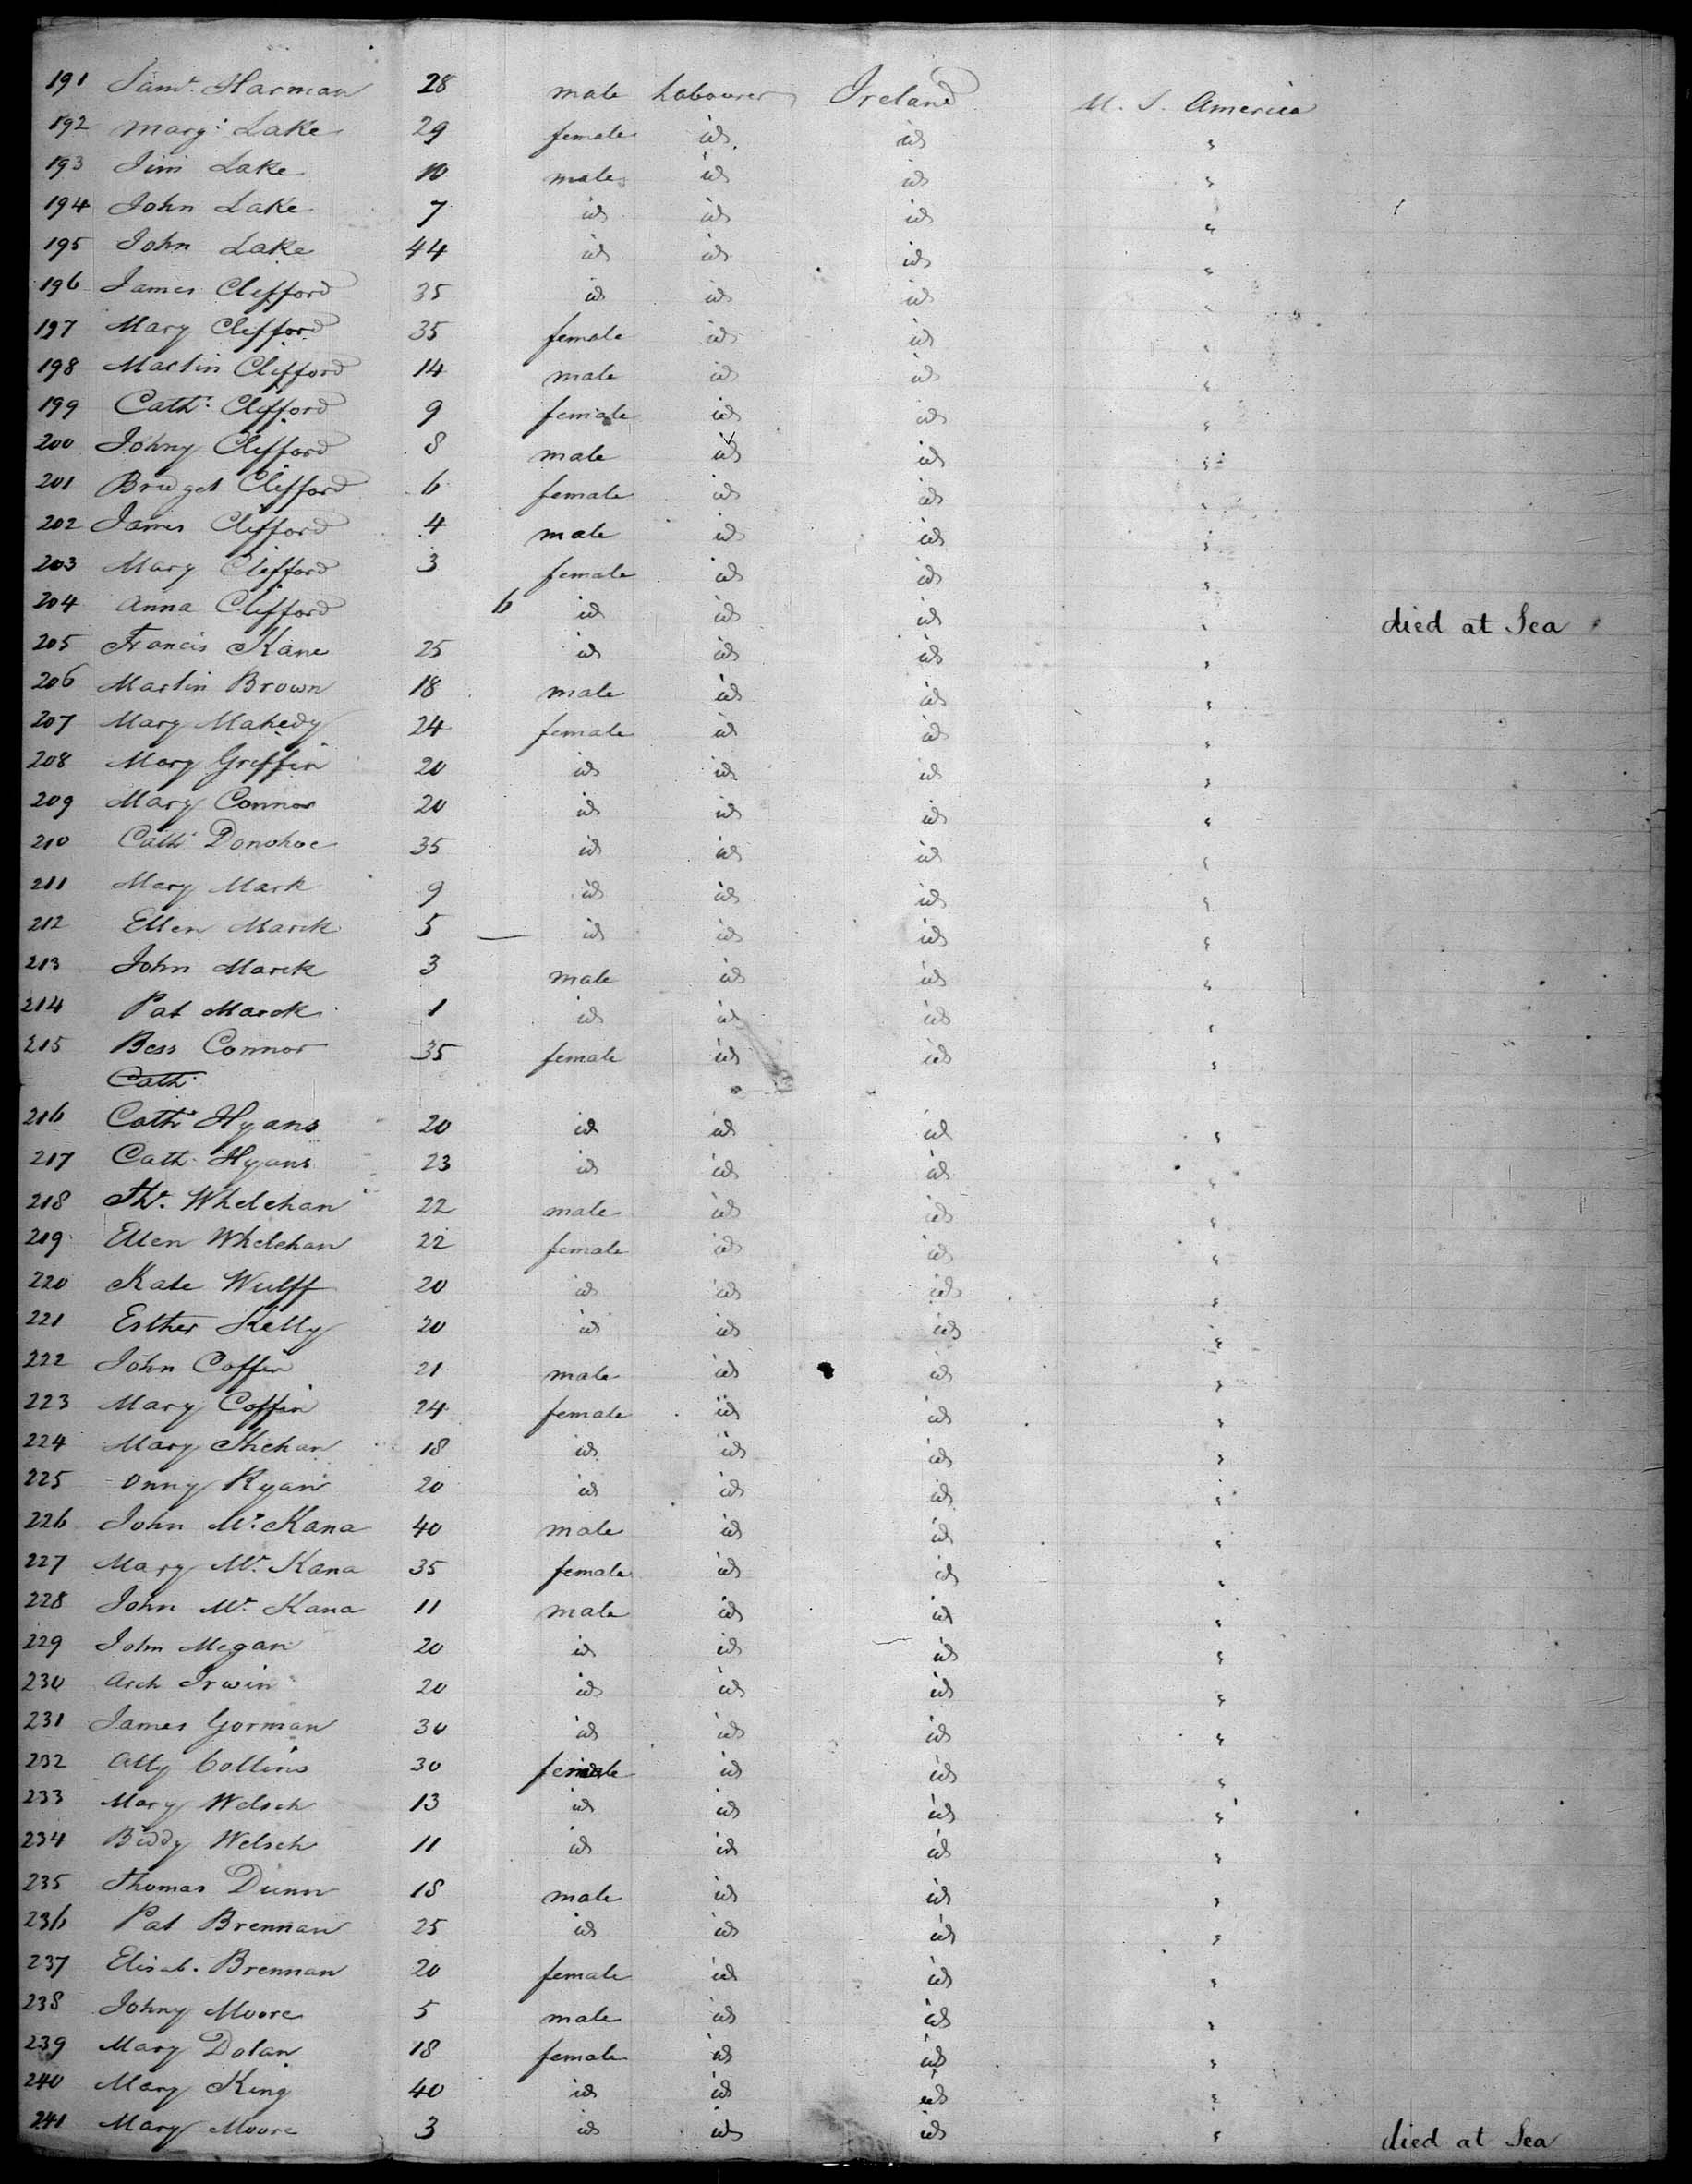 191 Saml. Harman 28 male Labourer Ireland U. S. America
192 Margt. Lake 29 female id id "
193 Jim Lake 10 male id id "
194 John Lake 7 id id id "
195 John Lake 44 id id id "
196 James Clifford 35 id id id "
197 Mary Clifford 35 female id id "
198 Martin Clifford 14 male id id "
199 Cath. Clifford 9 female id id "
200 Johny Clifford 8 male id id "
201 Bridget Clifford 6 female id id "
202 James Clifford 4 male id id "
203 Mary Clifford 3 female id id "
204 Anna Clifford 6 id id id " died at Sea
205 Francis Kane 25 id id id "
206 Martin Brown 18 male id id "
207 Mary Mahedy 24 female id id "
208 Mary Griffin 20 id id id "
209 Mary Connor 20 id id id "
210 Cath Donohoe 35 id id id "
211 Mary Mark 9 id id id "
212 Ellen Marck 5 id id id "
213 John Marck 3 male id id "
214 Pat Marck 1 id id id "
215 Bess Connor 35 female id id "
Cath.
216 Cath Hyans 20 id id id "
217 Cath. Hyans 23 id id id "
218 Ths. Whelehan 22 male id id "
219 Ellen Whelehan 22 female id id "
220 Kate Wulff 20 id id id "
221 Esther Kelly 20 id id id "
222 John Coffin 21 male id id "
223 Mary Coffin 24 female id id "
224 Mary Shehan 18 id id id "
225 Onny Ryan 20 id id id "
226 John Mc. Kana 40 male id id "
227 Mary Mc. Kana 35 female id id "
228 John Mc. Kana 11 male id id "
229 John Megan 20 id id id "
230 Arch Irwin 20 id id id "
231 James Gorman 30 id id id "
232 Ally Collins 30 female id id "
233 Mary Welsch 13 id id id "
234 Biddy Welsch 11 id id id "
235 Thomas Dunn 18 male id id "
236 Pat Brennan 25 id id id "
237 Elisab. Brennan 20 female id id "
238 Johny Moore 5 male id id "
239 Mary Dolan 18 female id id "
240 Mary King 40 id id id "
241 Mary Moore 3 id id id " died at Sea